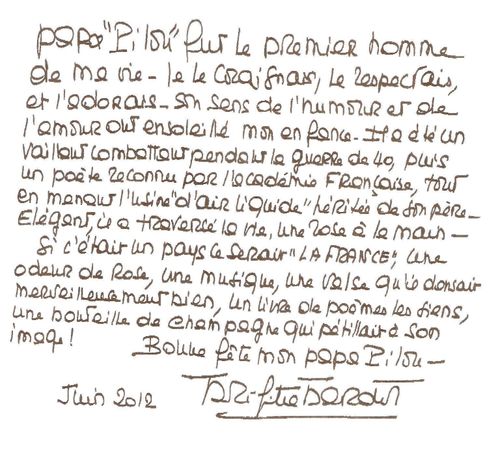 papa "Pilou" fut le premier homme
de ma vie - Je le craignais, le respectais,
et l'adorais - Son sens de l'humour et de
l'amour ont ensoleillé mon enfance - Il a été un
vaillant combattant pendant la guerre de 40, puis
un poète reconnu par l'académie Française, tout
en menant l'usine "d'air liquide" héritée de son père -
Elégant, il a traversé la vie, une rose à la main -
Si c'était un pays ce serait "LA FRANCE", une
odeur de Rose, une musique, une valse qu'il dansait
merveilleusement bien, un livre de poèmes les siens,
une bouteille de champagne qui pétillait à son
image !
Bonne fête mon papa Pilou -
Juin 2012
Brigitte BARDOT